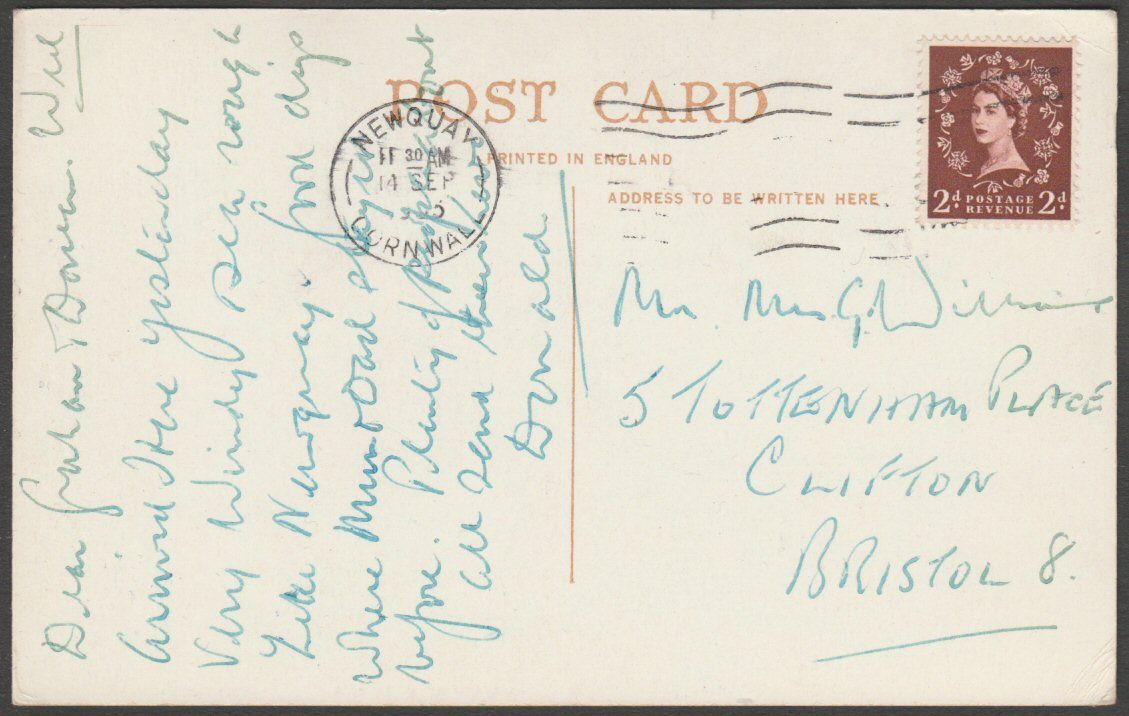 POST CARD
PRINTED IN ENGLAND
ADDRESS TO BE WRITTEN HERE
NEWQUAY
11 30 AM
14 SEP
CORNWALL
2d POSTAGE REVENUE 2d
Dear Graham & Doreen. Well
arrived here yesterday
Very Windy Sea rough
Like Newquay. Good digs
where Mum & Dad stayed
before. Plenty of
all send their love
Donald
Mr. Mrs G. Williams
5 TOTTENHAM PLACE
CLIFTON
BRISTOL 8.